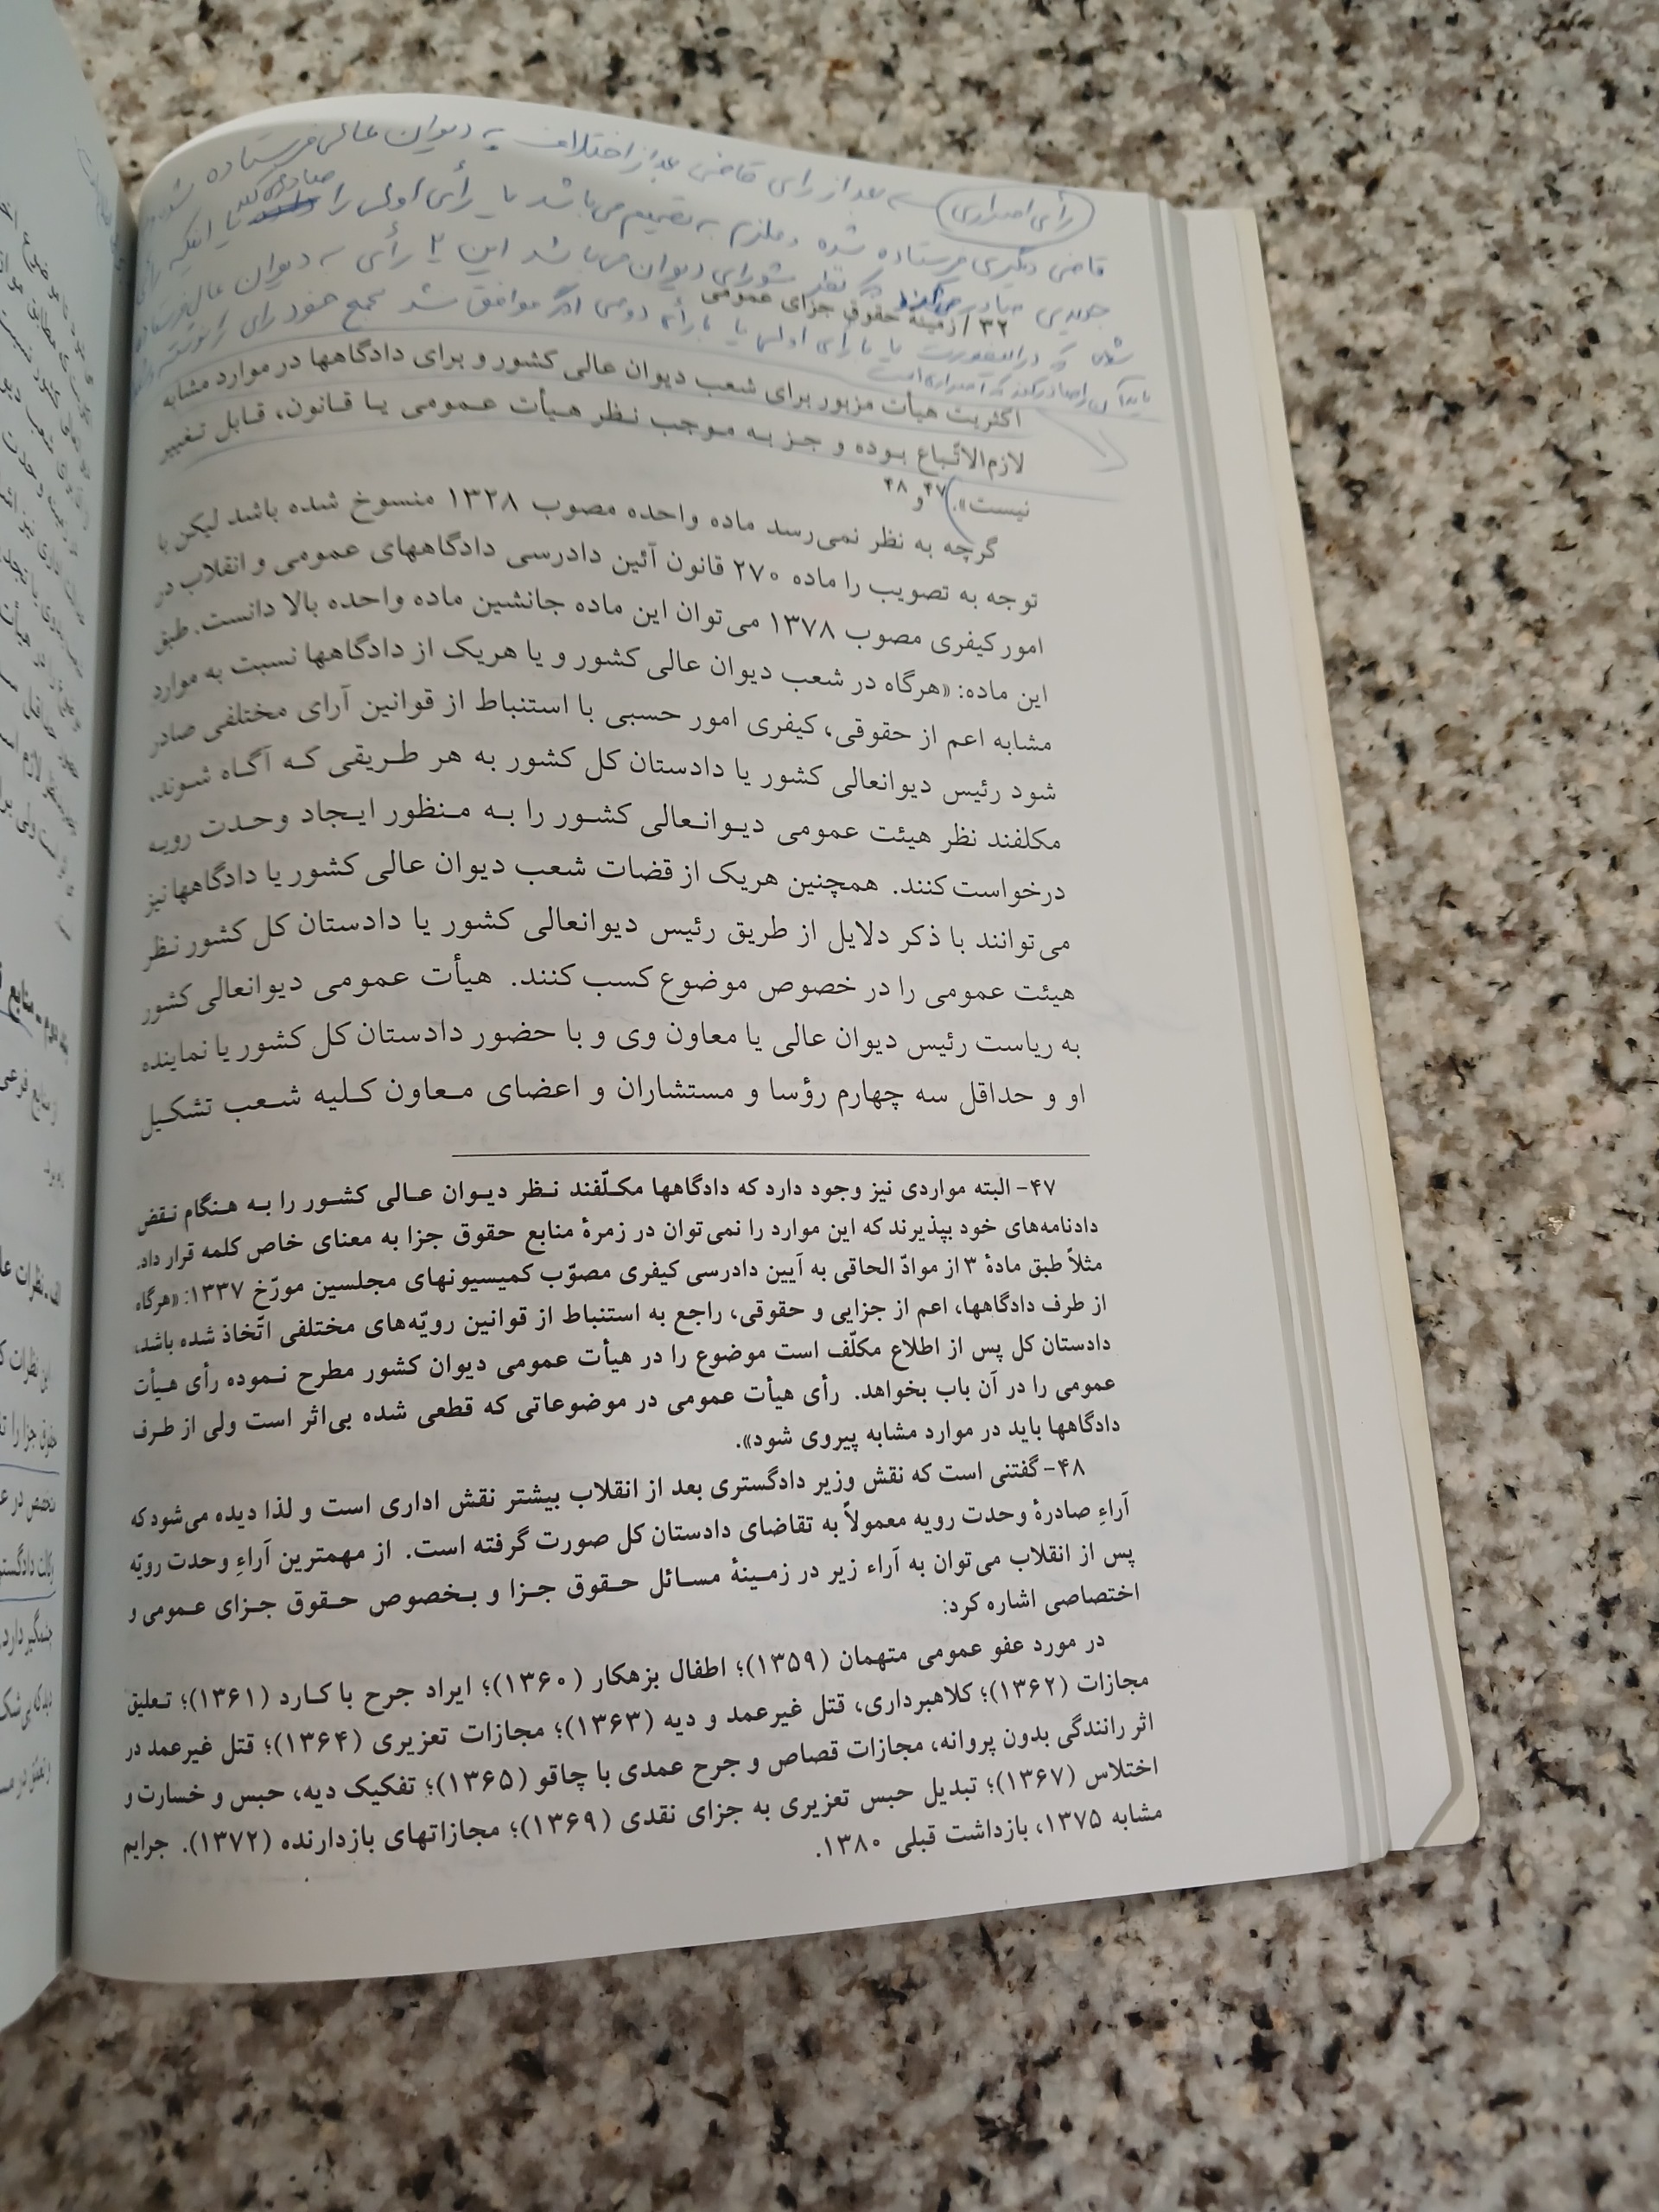 رأی اصراری بعد از رای قاضی بعد از اختلاف به دیوان عالی فرستاده شده
قاضی دیگری فرستاده شده و ملزم به تصمیم می‌باشد یا رأی اولی را صادر کند یا اینکه رأی
جدیدی صادر کند که نظر شورای دیوان می‌باشد این ۲ رأی به دیوان عالی فرستاده
۳۲ / زمینهٔ حقوق جزای عمومی
که در اینصورت یا با رای اولی یا با رأی دومی اگر موافق شد مجمع خود رای را
اکثریت هیأت مزبور برای شعب دیوان عالی کشور و برای دادگاهها در موارد مشابه
لازم‌الاتّباع بوده و جز به موجب نظر هیأت عمومی یا قانون، قابل تغییر
نیست».۴۷ و ۴۸
گرچه به نظر نمی‌رسد ماده واحده مصوب ۱۳۲۸ منسوخ شده باشد لیکن با
توجه به تصویب را ماده ۲۷۰ قانون آئین دادرسی دادگاههای عمومی و انقلاب در
امور کیفری مصوب ۱۳۷۸ می‌توان این ماده جانشین ماده واحده بالا دانست. طبق
این ماده: «هرگاه در شعب دیوان عالی کشور و یا هریک از دادگاهها نسبت به موارد
مشابه اعم از حقوقی، کیفری امور حسبی با استنباط از قوانین آرای مختلفی صادر
شود رئیس دیوانعالی کشور یا دادستان کل کشور به هر طریقی که آگاه شوند،
مکلفند نظر هیئت عمومی دیوانعالی کشور را به منظور ایجاد وحدت رویه
درخواست کنند. همچنین هریک از قضات شعب دیوان عالی کشور یا دادگاهها نیز
می‌توانند با ذکر دلایل از طریق رئیس دیوانعالی کشور یا دادستان کل کشور نظر
هیئت عمومی را در خصوص موضوع کسب کنند. هیأت عمومی دیوانعالی کشور
به ریاست رئیس دیوان عالی یا معاون وی و با حضور دادستان کل کشور یا نماینده
او و حداقل سه چهارم رؤسا و مستشاران و اعضای معاون کلیه شعب تشکیل
۴۷- البته مواردی نیز وجود دارد که دادگاهها مکلّفند نظر دیوان عالی کشور را به هنگام نقض
دادنامه‌های خود بپذیرند که این موارد را نمی‌توان در زمرهٔ منابع حقوق جزا به معنای خاص کلمه قرار داد.
مثلاً طبق مادهٔ ۳ از موادّ الحاقی به آیین دادرسی کیفری مصوّب کمیسیونهای مجلسین مورّخ ۱۳۳۷: «هرگاه
از طرف دادگاهها، اعم از جزایی و حقوقی، راجع به استنباط از قوانین رویّه‌های مختلفی اتّخاذ شده باشد،
دادستان کل پس از اطلاع مکلّف است موضوع را در هیأت عمومی دیوان کشور مطرح نموده رأی هیأت
عمومی را در آن باب بخواهد. رأی هیأت عمومی در موضوعاتی که قطعی شده بی‌اثر است ولی از طرف
دادگاهها باید در موارد مشابه پیروی شود».
۴۸- گفتنی است که نقش وزیر دادگستری بعد از انقلاب بیشتر نقش اداری است و لذا دیده می‌شود که
آراءِ صادرهٔ وحدت رویه معمولاً به تقاضای دادستان کل صورت گرفته است. از مهمترین آراءِ وحدت رویّه
پس از انقلاب می‌توان به آراء زیر در زمینهٔ مسائل حقوق جزا و بخصوص حقوق جزای عمومی و
اختصاصی اشاره کرد:
در مورد عفو عمومی متهمان (۱۳۵۹)؛ اطفال بزهکار (۱۳۶۰)؛ ایراد جرح با کارد (۱۳۶۱)؛ تعلیق
مجازات (۱۳۶۲)؛ کلاهبرداری، قتل غیرعمد و دیه (۱۳۶۳)؛ مجازات تعزیری (۱۳۶۴)؛ قتل غیرعمد در
اثر رانندگی بدون پروانه، مجازات قصاص و جرح عمدی با چاقو (۱۳۶۵)؛ تفکیک دیه، حبس و خسارت و
اختلاس (۱۳۶۷)؛ تبدیل حبس تعزیری به جزای نقدی (۱۳۶۹)؛ مجازاتهای بازدارنده (۱۳۷۲). جرایم
مشابه ۱۳۷۵، بازداشت قبلی ۱۳۸۰.